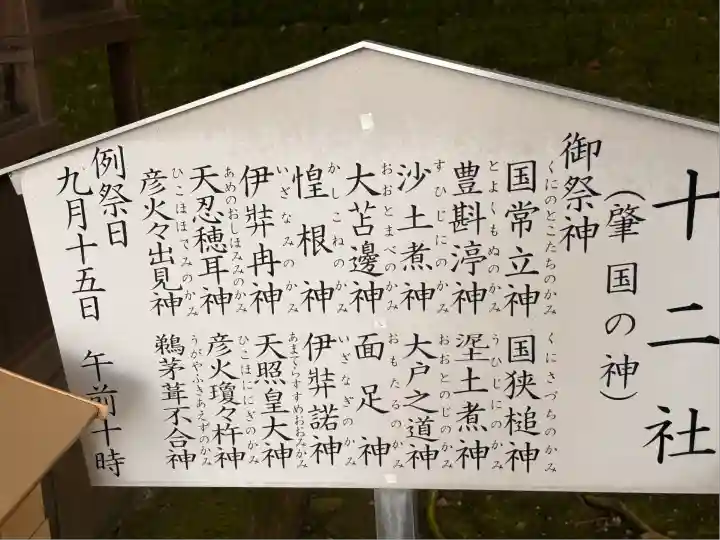 十二社
（肇国の神）
御祭神
国常立神 国狭槌神
くにのとこたちのかみ くにさづちのかみ
豊斟渟神 埿土煮神
とよくもぬのかみ うひじにのかみ
沙土煮神 大戸之道神
すひじにのかみ おおとのじのかみ
大苫邊神 面足神
おおとまべのかみ おもたるのかみ
惶根神 伊弉諾神
かしこねのかみ いざなぎのかみ
伊弉冉神 天照皇大神
いざなみのかみ あまてらすすめおおみかみ
天忍穂耳神 彦火瓊々杵神
あめのおしほみみのかみ ひこほににぎのかみ
彦火々出見神 鵜茅葺不合神
ひこほほでみのかみ うがやふきあえずのかみ
例祭日
九月十五日 午前十時